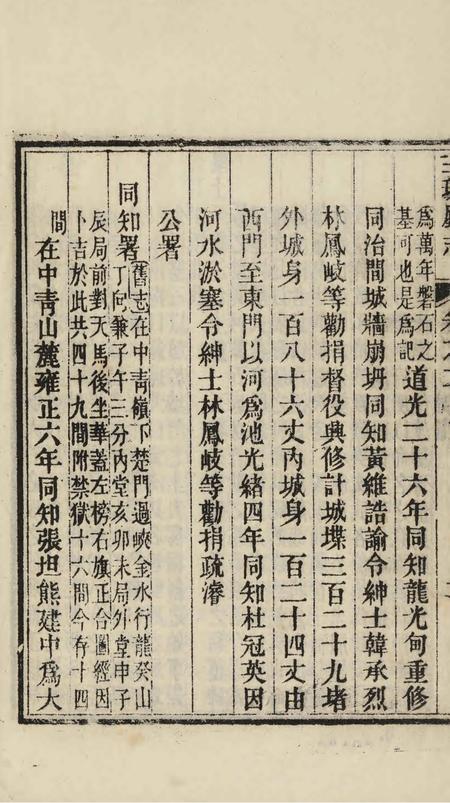 為萬年磐石之
基可也是為記
道光二十六年同知龍光甸重修
同治間城牆崩坍同知黃維誥諭令紳士韓承烈
林鳳岐等勸捐督役興修計城堞三百二十九堵
外城身一百八十六丈內城身一百二十四丈由
西門至東門以河爲池光緒四年同知杜冠英因
河水淤塞令紳士林鳳岐等勸捐疏濬
公署
同知署
舊志在中青嶺下楚門過峽金水行龍癸山
丁向兼子午三分內堂亥卯未局外堂申子
辰局前對天馬後坐華蓋左榜右旗正合圖經因
卜吉於此共四十九間附禁獄十六間今存十四
間
在中青山麓雍正六年同知張坦熊建中爲大